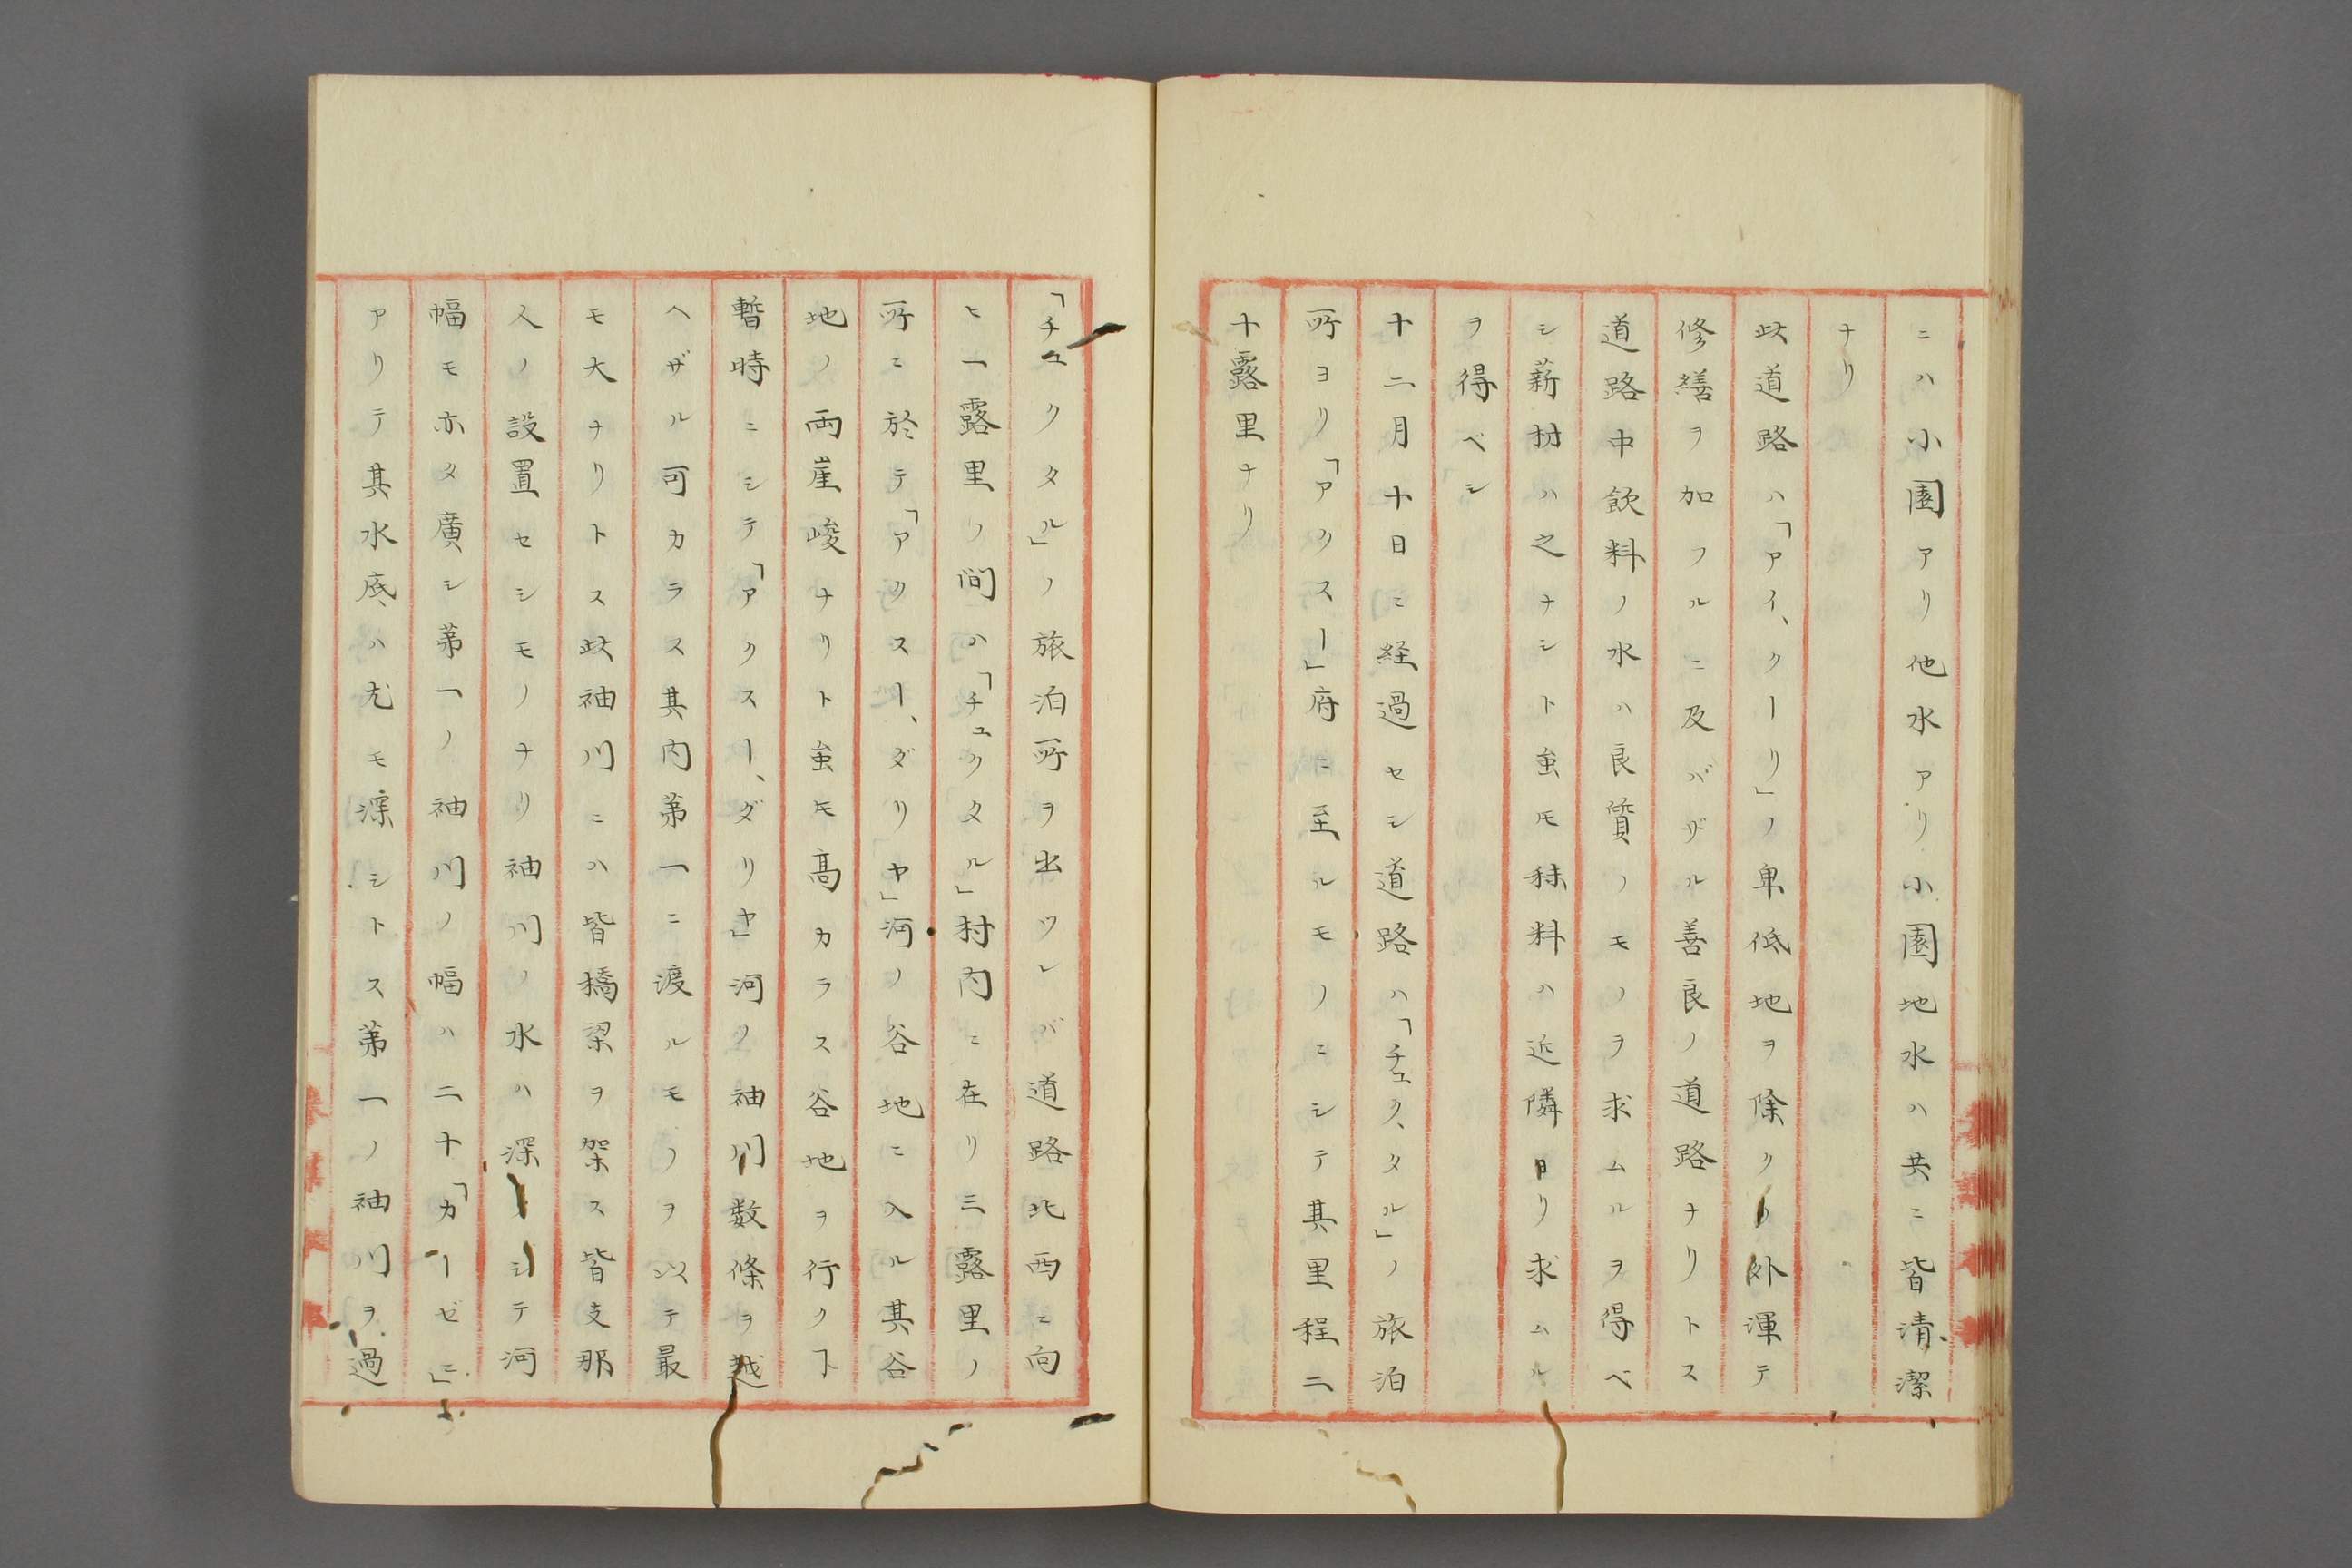 ニハ小園アリ他水アリ小園地水ハ共ニ皆清潔
ナリ
此道路ハ「アイ、クーリ」ノ卑低地ヲ除クノ外渾テ
修繕ヲ加フルニ及バザル善良ノ道路ナリトス
道路中飲料ノ水ハ良質ノモノヲ求ムルヲ得ベ
シ薪材ハ之ナシト虽モ秣料ハ近隣ヨリ求ムル
ヲ得ベシ
十二月十日ニ経過セシ道路ハ「チュク、タル」ノ旅泊
所ヨリ「アクスー」府ニ至ルモノニシテ其里程二
十露里ナリ
「チュクタル」ノ旅泊所ヲ出ツレバ道路北西ニ向
ヒ一露里ノ間ハ「チュクタル」村内ニ在リ三露里ノ
所ニ於テ「アクスー、ダリヤ」河ノ谷地ニ入ル其谷
地ノ両崖峻ナリト虽モ高カラス谷地ヲ行クヿ
暫時ニシテ「アクスー、ダリヤ」河ノ袖川数條ヲ越
ヘザル可カラス其内第一ニ渡ルモノヲ以テ最
モ大ナリトス此袖川ニハ皆橋梁ヲ架ス皆支那
人ノ設置セシモノナリ袖川ノ水ハ深クシテ河
幅モ亦タ廣シ第一ノ袖川ノ幅ハ二十「カーゼニ」
アリテ其水底ハ尤モ深シトス第一ノ袖川ヲ過